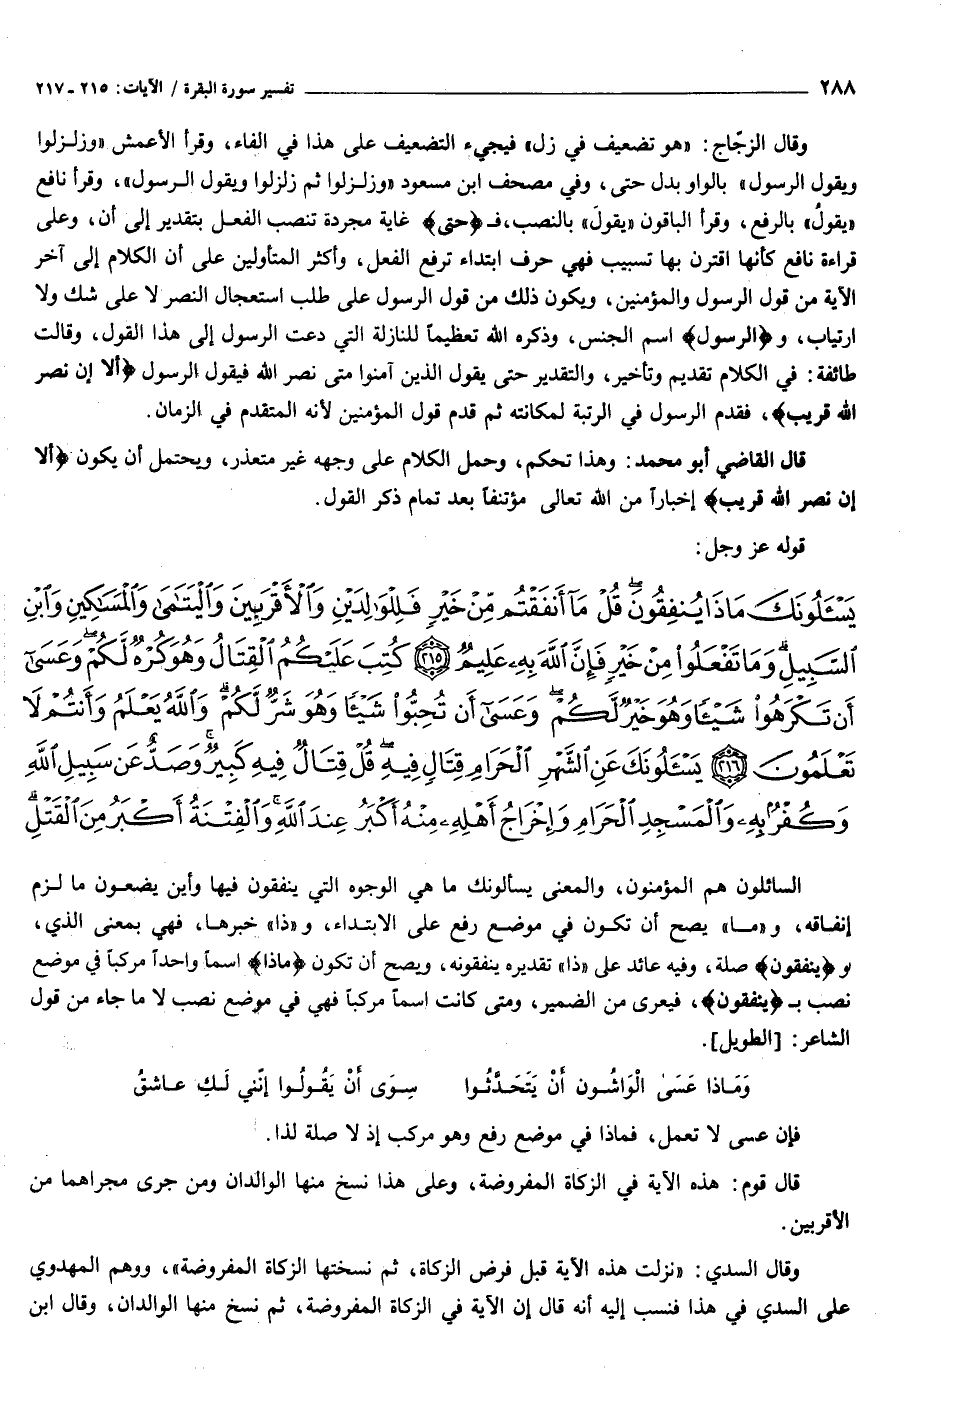 ٢٨٨ تفسير سورة البقرة / الآيات: ٢١٥ ـ ٢١٧
وقال الزجّاج: «هو تضعيف في زل» فيجيء التضعيف على هذا في الفاء، وقرأ الأعمش «وزلـزلوا
ويقول الرسول» بالواو بدل حتى، وفي مصحف ابن مسعود «وزلـزلوا ثم زلزلوا ويقول الـرسول»، وقرأ نافع
«يقولُ» بالرفع، وقرأ الباقون «يقولَ» بالنصب، فـ ﴿حتى﴾ غاية مجردة تنصب الفعـل بتقدير إلى أن، وعلى
قراءة نافع كأنها اقترن بها تسبيب فهي حرف ابتداء ترفع الفعل، وأكثر المتأولين على أن الكلام إلى آخر
الآية من قول الرسول والمؤمنين، ويكون ذلك من قول الرسول على طلب استعجال النصر لا على شك ولا
ارتياب، و ﴿الرسول﴾ اسم الجنس، وذكره الله تعظيماً للنازلة التي دعت الرسول إلى هذا القول، وقالت
طائفة: في الكلام تقديم وتأخير، والتقدير حتى يقول الذين آمنوا متى نصر الله فيقول الرسول ﴿ألا إن نصر
الله قريب﴾، فقدم الرسول في الرتبة لمكانته ثم قدم قول المؤمنين لأنه المتقدم في الزمان.
قال القاضي أبو محمد: وهذا تحكم، وحمل الكلام على وجهه غير متعذر، ويحتمل أن يكون ﴿ألا
إن نصر الله قريب﴾ إخباراً من الله تعالى مؤتنفاً بعد تمام ذكر القول.
قوله عز وجل:
يَسْـَٔلُونَكَ مَاذَا يُنفِقُونَۖ قُلْ مَآ أَنفَقْتُم مِّنْ خَيْرٍ فَلِلْوَٰلِدَيْنِ وَٱلْأَقْرَبِينَ وَٱلْيَتَٰمَىٰ وَٱلْمَسَٰكِينِ وَٱبْنِ
ٱلسَّبِيلِۗ وَمَا تَفْعَلُوا۟ مِنْ خَيْرٍ فَإِنَّ ٱللَّهَ بِهِۦ عَلِيمٌ ﴿٢١٥﴾ كُتِبَ عَلَيْكُمُ ٱلْقِتَالُ وَهُوَ كُرْهٌ لَّكُمْۖ وَعَسَىٰٓ
أَن تَكْرَهُوا۟ شَيْـًٔا وَهُوَ خَيْرٌ لَّكُمْۖ وَعَسَىٰٓ أَن تُحِبُّوا۟ شَيْـًٔا وَهُوَ شَرٌّ لَّكُمْۗ وَٱللَّهُ يَعْلَمُ وَأَنتُمْ لَا
تَعْلَمُونَ ﴿٢١٦﴾ يَسْـَٔلُونَكَ عَنِ ٱلشَّهْرِ ٱلْحَرَامِ قِتَالٍ فِيهِۖ قُلْ قِتَالٌ فِيهِ كَبِيرٌۚ وَصَدٌّ عَن سَبِيلِ ٱللَّهِ
وَكُفْرٌۢ بِهِۦ وَٱلْمَسْجِدِ ٱلْحَرَامِ وَإِخْرَاجُ أَهْلِهِۦ مِنْهُ أَكْبَرُ عِندَ ٱللَّهِۚ وَٱلْفِتْنَةُ أَكْبَرُ مِنَ ٱلْقَتْلِۗ
السائلون هم المؤمنون، والمعنى يسألونك ما هي الوجوه التي ينفقون فيها وأين يضعـون ما لـزم
إنفـاقه، و «مـا» يصح أن تكـون في موضـع رفع على الابتـداء، و «ذا» خبرهـا، فهي بمعنى الذي،
و ﴿ينفقون﴾ صلة، وفيه عائد على «ذا» تقديره ينفقونه، ويصح أن تكون ﴿ماذا﴾ اسماً واحداً مركباً في موضع
نصب بـ ﴿ينفقون﴾، فيعرى من الضمير، ومتى كانت اسماً مركباً فهي في موضع نصب لا ما جاء من قول
الشاعر: [الطويل].
وَمَاذا عَسَىٰ الْوَاشُـون أَنْ يَتَحَـدَّثُـوا سِوَى أَنْ يَقُـولُـوا إنّني لَـكِ عـاشقُ
فإن عسى لا تعمل، فماذا في موضع رفع وهو مركب إذ لا صلة لذا.
قال قوم: هذه الآية في الزكاة المفروضة، وعلى هذا نسخ منها الوالدان ومن جرى مجراهما من
الأقربين.
وقال السدي: «نزلت هذه الآية قبل فرض الزكاة، ثم نسختها الزكاة المفروضة»، ووهم المهدوي
على السدي في هذا فنسب إليه أنه قال إن الآية في الزكاة المفروضة، ثم نسخ منها الوالدان، وقال ابن